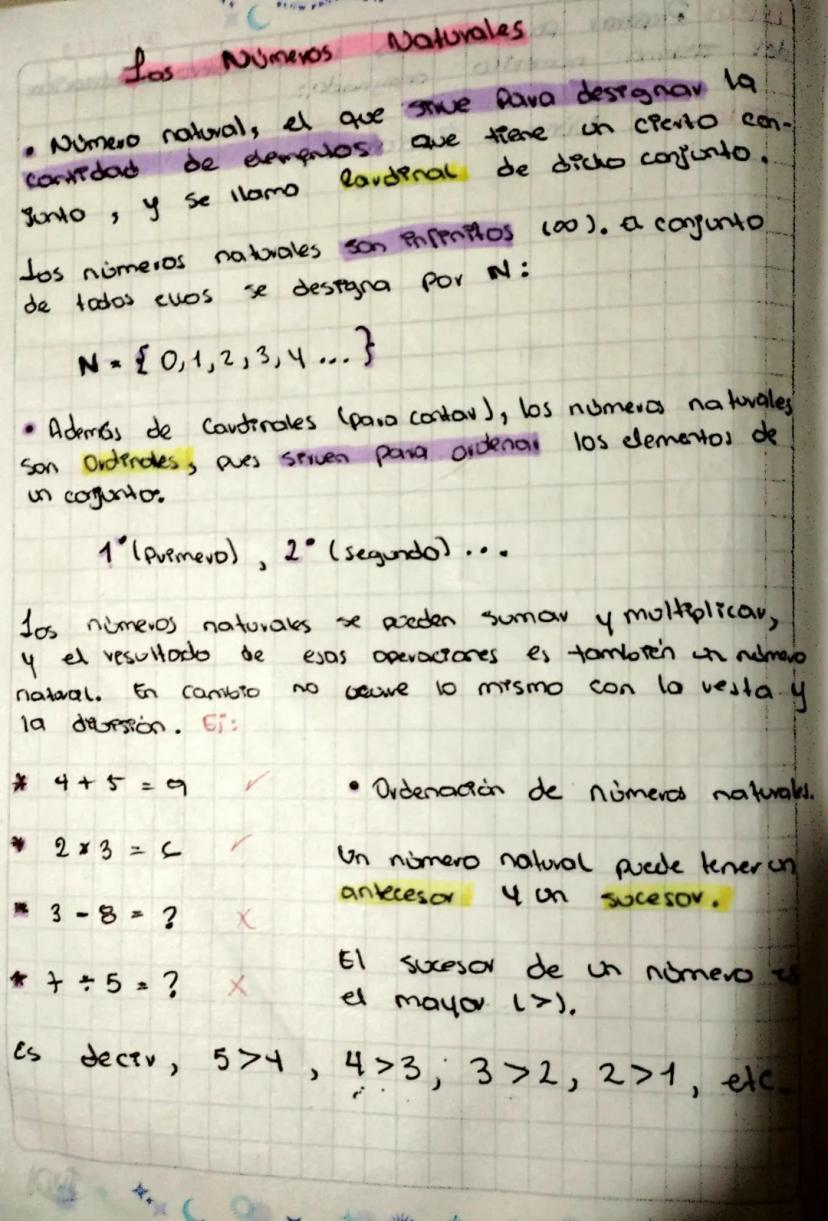 Los Números Naturales
• Número natural, el que sirve para designar la
cantidad de elementos que tiene un cierto con-
junto, y se llama Cardinal de dicho conjunto.
Los números naturales son infinitos (∞). a conjunto
de todos ellos se designa por N:
N = { 0, 1, 2, 3, 4 ... }
• Además de Cardinales (para contar), los números naturales
son Ordinales, pues sirven para ordenar los elementos de
un cojunto.
1° (primero), 2° (segundo) ...
Los números naturales se pueden sumar y multiplicar,
y el resultado de esas operaciones es también un número
natural. En cambio no ocurre lo mismo con la resta y
la división. Ej:
* 4 + 5 = 9 ✓
* 2 x 3 = 6 ✓
* 3 - 8 = ? x
* 7 ÷ 5 = ? x
• Ordenación de números naturales.
Un número natural puede tener un
antecesor y un sucesor.
El sucesor de un número es
el mayor (>).
Es decir, 5>4, 4>3, 3>2, 2>1, etc